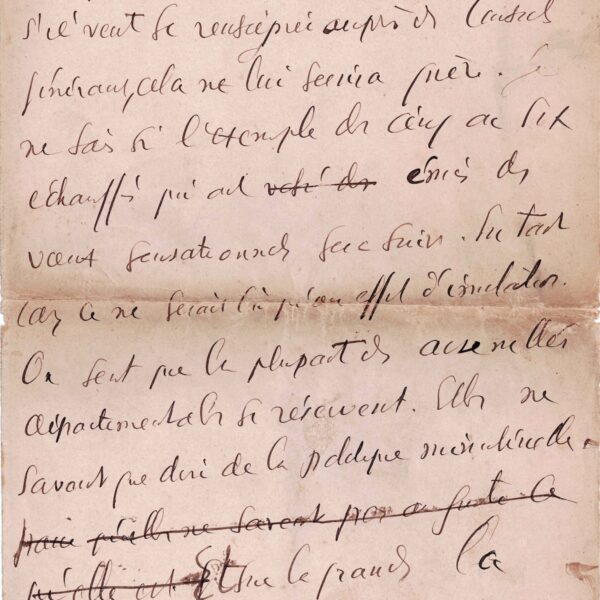 s'il veut se renseigner auprès des Conseils
généraux, cela ne lui servira guère. Je
ne sais si l'exemple des cinq ou six
échauffés qui ont voté des émis des
vœux sensationnels sera suivi. En tout
cas, ce ne serait là qu'un effet d'imitation.
On sent que la plupart des assemblées
départementales se réservent. Elles ne
savent que dire de la politique ministérielle.
parce qu'elles ne savent pas au juste ce
qu'elle est Et sur le grand la